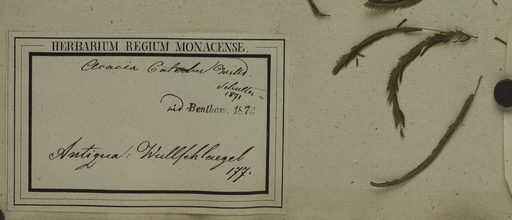 HERBARIUM REGIUM MONACENSE.
Acacia Catechu Willd.
1871
vid. Bentham. 1873
Antigua: Wullschlaegel
177.